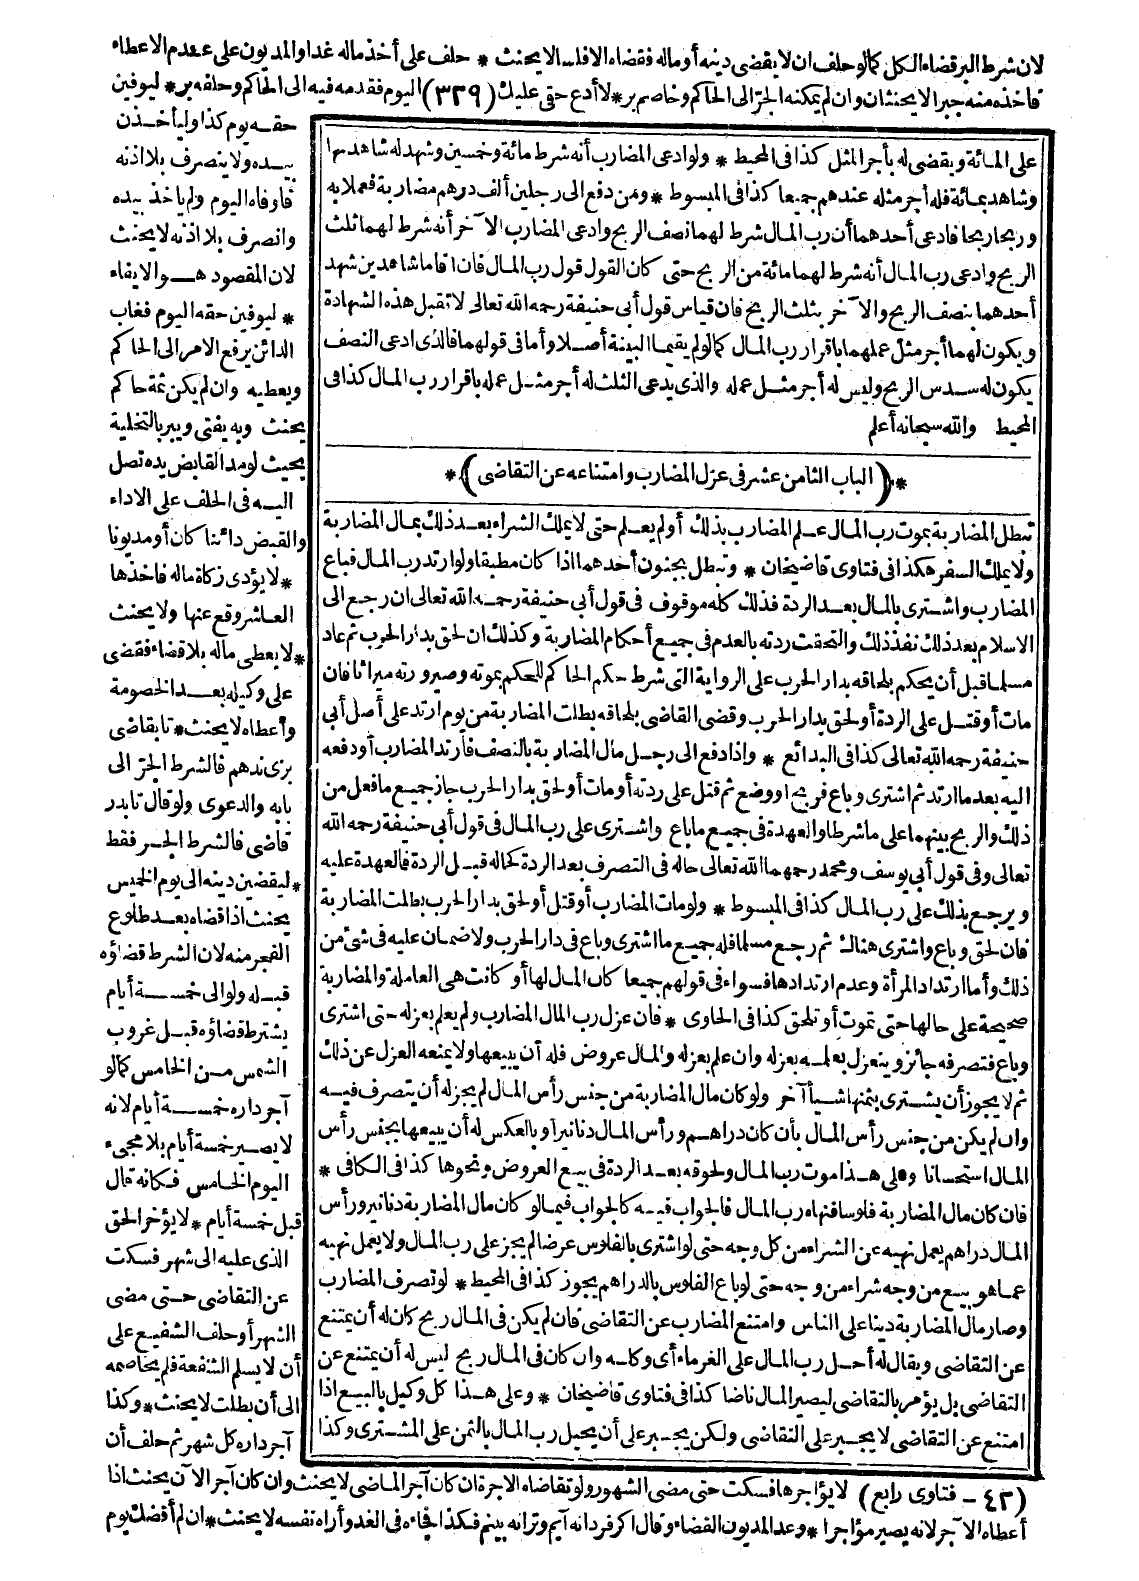 لان شرط البر قضاء الكل كما لو حلف ان لا يقضى دينه أو ماله فقضاه الا فلسا لا يحنث * حلف على أخذ ماله غدا والمديون على عدم الاعطاء
فاخذه منه جبرا لا يحنثان وان لم يمكنه الجر الى الحاكم وخاصم بر * لا أدع حقى عليك (٣٢٩) اليوم فقدمه فيه الى الحاكم وحلفه بر * ليوفين
على المائة ويقضى له بأجر المثل كذا فى المحيط * ولو ادعى المضارب أنه شرط مائة وخمسين وشهد له شاهد بها
وشاهد بمائة فله أجر مثله عندهم جميعا كذا فى المبسوط * ومن دفع الى رجلين ألف درهم مضاربة فعملا به
وربحا ربحا فادعى أحدهما أن رب المال شرط لهما نصف الربح وادعى المضارب الآخر أنه شرط لهما ثلث
الربح وادعى رب المال أنه شرط لهما مائة من الربح حتى كان القول قول رب المال فان أقاما شاهدين شهد
أحدهما بنصف الربح والآخر بثلث الربح فان قياس قول أبى حنيفة رحمه الله تعالى لا تقبل هذه الشهادة
ويكون لهما أجر مثل عملهما باقرار رب المال كما لو لم يقيما البينة أصلا وأما فى قولهما فالذى ادعى النصف
يكون له سدس الربح وليس له أجر مثل عمله والذى يدعى الثلث له أجر مثل عمله باقرار رب المال كذا فى
المحيط والله سبحانه أعلم
* (الباب الثامن عشر فى عزل المضارب وامتناعه عن التقاضى) *
تبطل المضاربة بموت رب المال علم المضارب بذلك أو لم يعلم حتى لا يملك الشراء بعد ذلك بمال المضاربة
ولا يملك السفر هكذا فى فتاوى قاضيخان * وتبطل بجنون أحدهما اذا كان مطبقا ولو ارتد رب المال فباع
المضارب واشترى بالمال بعد الردة فذلك كله موقوف فى قول أبى حنيفة رحمه الله تعالى ان رجع الى
الاسلام بعد ذلك نفذ ذلك والتحقت ردته بالعدم فى جميع أحكام المضاربة وكذلك ان لحق بدار الحرب ثم عاد
مسلما قبل أن يحكم بلحاقه بدار الحرب على الرواية التى شرط حكم الحاكم للحكم بموته وصيرورته ميراثا فان
مات أو قتل على الردة أو لحق بدار الحرب وقضى القاضى بلحاقه بطلت المضاربة من يوم ارتد على أصل أبى
حنيفة رحمه الله تعالى كذا فى البدائع * واذا دفع الى رجل مال المضاربة بالنصف فارتد المضارب أو دفعه
اليه بعد ما ارتد ثم اشترى وباع فربح أو وضع ثم قتل على ردته أو مات أو لحق بدار الحرب جاز جميع ما فعل من
ذلك والربح بينهما على ما شرطا والعهدة فى جميع ما باع واشترى على رب المال فى قول أبى حنيفة رحمه الله
تعالى وفى قول أبى يوسف ومحمد رحمهما الله تعالى حاله فى التصرف بعد الردة كحاله قبل الردة فالعهدة عليه
ويرجع بذلك على رب المال كذا فى المبسوط * ولو مات المضارب أو قتل أو لحق بدار الحرب بطلت المضاربة
فان لحق وباع واشترى هناك ثم رجع مسلما فله جميع ما اشترى وباع فى دار الحرب ولا ضمان عليه فى شئ من
ذلك وأما ارتداد المرأة وعدم ارتدادها فسواء فى قولهم جميعا كان المال لها أو كانت هى العاملة والمضاربة
صحيحة على حالها حتى تموت أو تلحق كذا فى الحاوى * فان عزل رب المال المضارب ولم يعلم بعزله حتى اشترى
وباع فتصرفه جائز وينعزل بعلمه بعزله وان علم بعزله والمال عروض فله أن يبيعها ولا يمنعه العزل عن ذلك
ثم لا يجوز أن يشترى بثمنها شيأ آخر ولو كان مال المضاربة من جنس رأس المال لم يجز له أن يتصرف فيه
وان لم يكن من جنس رأس المال بأن كان دراهم ورأس المال دنانير أو بالعكس له أن يبيعها بجنس رأس
المال استحسانا وعلى هذا موت رب المال ولحوقه بعد الردة فى بيع العروض ونحوها كذا فى الكافى *
فان كان مال المضاربة فلوسا فنهاه رب المال فالجواب فيه كالجواب فيما لو كان مال المضاربة دنانير ورأس
المال دراهم يعمل نهيه عن الشراء من كل وجه حتى لو اشترى بالفلوس عرضا لم يجز على رب المال ولا يعمل نهيه
عما هو بيع من وجه شراء من وجه حتى لو باع الفلوس بالدراهم يجوز كذا فى المحيط * لو تصرف المضارب
وصار مال المضاربة دينا على الناس وامتنع المضارب عن التقاضى فان لم يكن فى المال ربح كان له أن يمتنع
عن التقاضى ويقال له أحل رب المال على الغرماء أى وكله وان كان فى المال ربح ليس له أن يمتنع عن
التقاضى بل يؤمر بالتقاضى ليصير المال ناضا كذا فى فتاوى قاضيخان * وعلى هذا كل وكيل بالبيع اذا
امتنع عن التقاضى لا يجبر على التقاضى ولكن يجبر على أن يحيل رب المال بالثمن على المشترى وكذا
حقه يوم كذا وليأخذن
بيده ولا ينصرف بلا اذنه
فاوفاه اليوم ولم يأخذ بيده
وانصرف بلا اذنه لا يحنث
لان المقصود هو الايفاء
* ليوفين حقه اليوم فغاب
الدائن يرفع الامر الى الحاكم
ويعطيه وان لم يكن ثمة حاكم
يحنث وبه يفتى ويبر بالتخلية
بحيث لو مد القابض يده تصل
اليه فى الحلف على الاداء
والقبض دائنا كان أو مديونا
* لا يؤدى زكاة ماله فاخذها
العاشر وقع عنها ولا يحنث
* لا يعطى ماله بلا قضاء فقضى
على وكيله بعد الخصومة
وأعطاه لا يحنث * تا بقاضى
برى ندهم فالشرط الجر الى
بابه والدعوى ولو قال تا بدر
قاضى فالشرط الجر فقط
* ليقضين دينه الى يوم الخميس
يحنث اذا قضاه بعد طلوع
الفجر منه لان الشرط قضاؤه
قبله ولو الى خمسة أيام
يشترط قضاؤه قبل غروب
الشمس من الخامس كما لو
آجر داره خمسة أيام لانه
لا يصير خمسة أيام بلا مجىء
اليوم الخامس فكانه قال
قبل خمسة أيام * لا يؤخر الحق
الذى عليه الى شهر فسكت
عن التقاضى حتى مضى
الشهر أو حلف الشفيع على
أن لا يسلم الشفعة فلم يخاصمه
الى أن بطلت لا يحنث * وكذا
آجر داره كل شهر ثم حلف أن
(٤٢ - فتاوى رابع) لا يؤاجرها فسكت حتى مضى الشهور ولو تقاضاه الاجرة ان كان آجر الماضى لا يحنث وان كان آجر الآن يحنث اذا
أعطاه الآجر لانه يصير مؤاجرا * وعد المديون القضاء وقال اكر فردا نه آيم وترا نه بينم فكذا فجاءه فى الغد وأراه نفسه لا يحنث * ان لم أقضك يوم